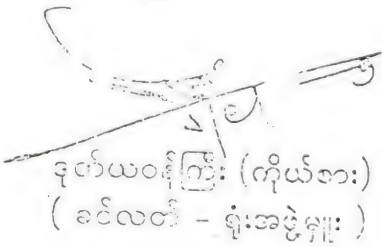 ဒုတိယဝန်ကြီး (ကိုယ်စား)
( ခင်လတ် - ရုံးအဖွဲ့မှူး )